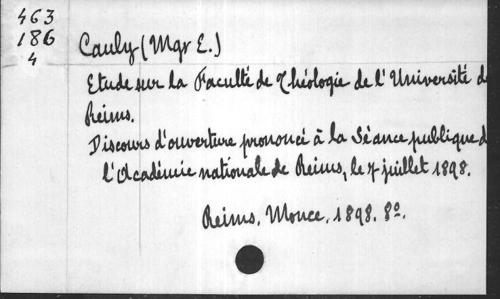 463
186
4
Cauly (Mgr E.)
Etude sur la Faculté de Théologie de l'Université de
Reims.
Discours d'ouverture prononcé à la Séance publique d
l'Académie nationale de Reims, le 7 juillet 1898.
Reims, Monce, 1898. 8º.